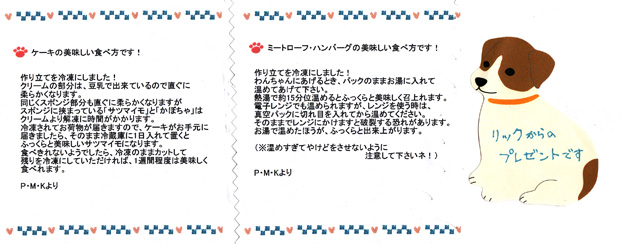 ケーキの美味しい食べ方です！
作り立てを冷凍にしました！
クリームの部分は、豆乳で出来ているので直ぐに
柔らかくなります。
同じくスポンジ部分も直ぐに柔らかくなりますが
スポンジに挟まっている「サツマイモ」と「かぼちゃ」は
クリームより解凍に時間がかかります。
冷凍されてお荷物が届きますので、ケーキがお手元に
届きましたら、そのまま冷蔵庫に1日入れて置くと
ふっくらと美味しいサツマイモになります。
食べきれないようでしたら、冷凍のままカットして
残りを冷凍にしていただければ、1週間程度は美味しく
食べれます。
P・M・Kより
ミートローフ・ハンバーグの美味しい食べ方です！
作り立てを冷凍にしました！
わんちゃんにあげるとき、パックのままお湯に入れて
温めてあげて下さい。
熱湯で約15分位温めるとふっくらと美味しく召上れます。
電子レンジでも温められますが、レンジを使う時は、
真空パックに切れ目を入れてから温めてください。
そのままでレンジにかけますと破裂する恐れがあります。
お湯で温めたほうが、ふっくらと出来上がります。
（※温めすぎてやけどをさせないように
注意して下さいネ！）
P・M・Kより
リックからの
プレゼントです